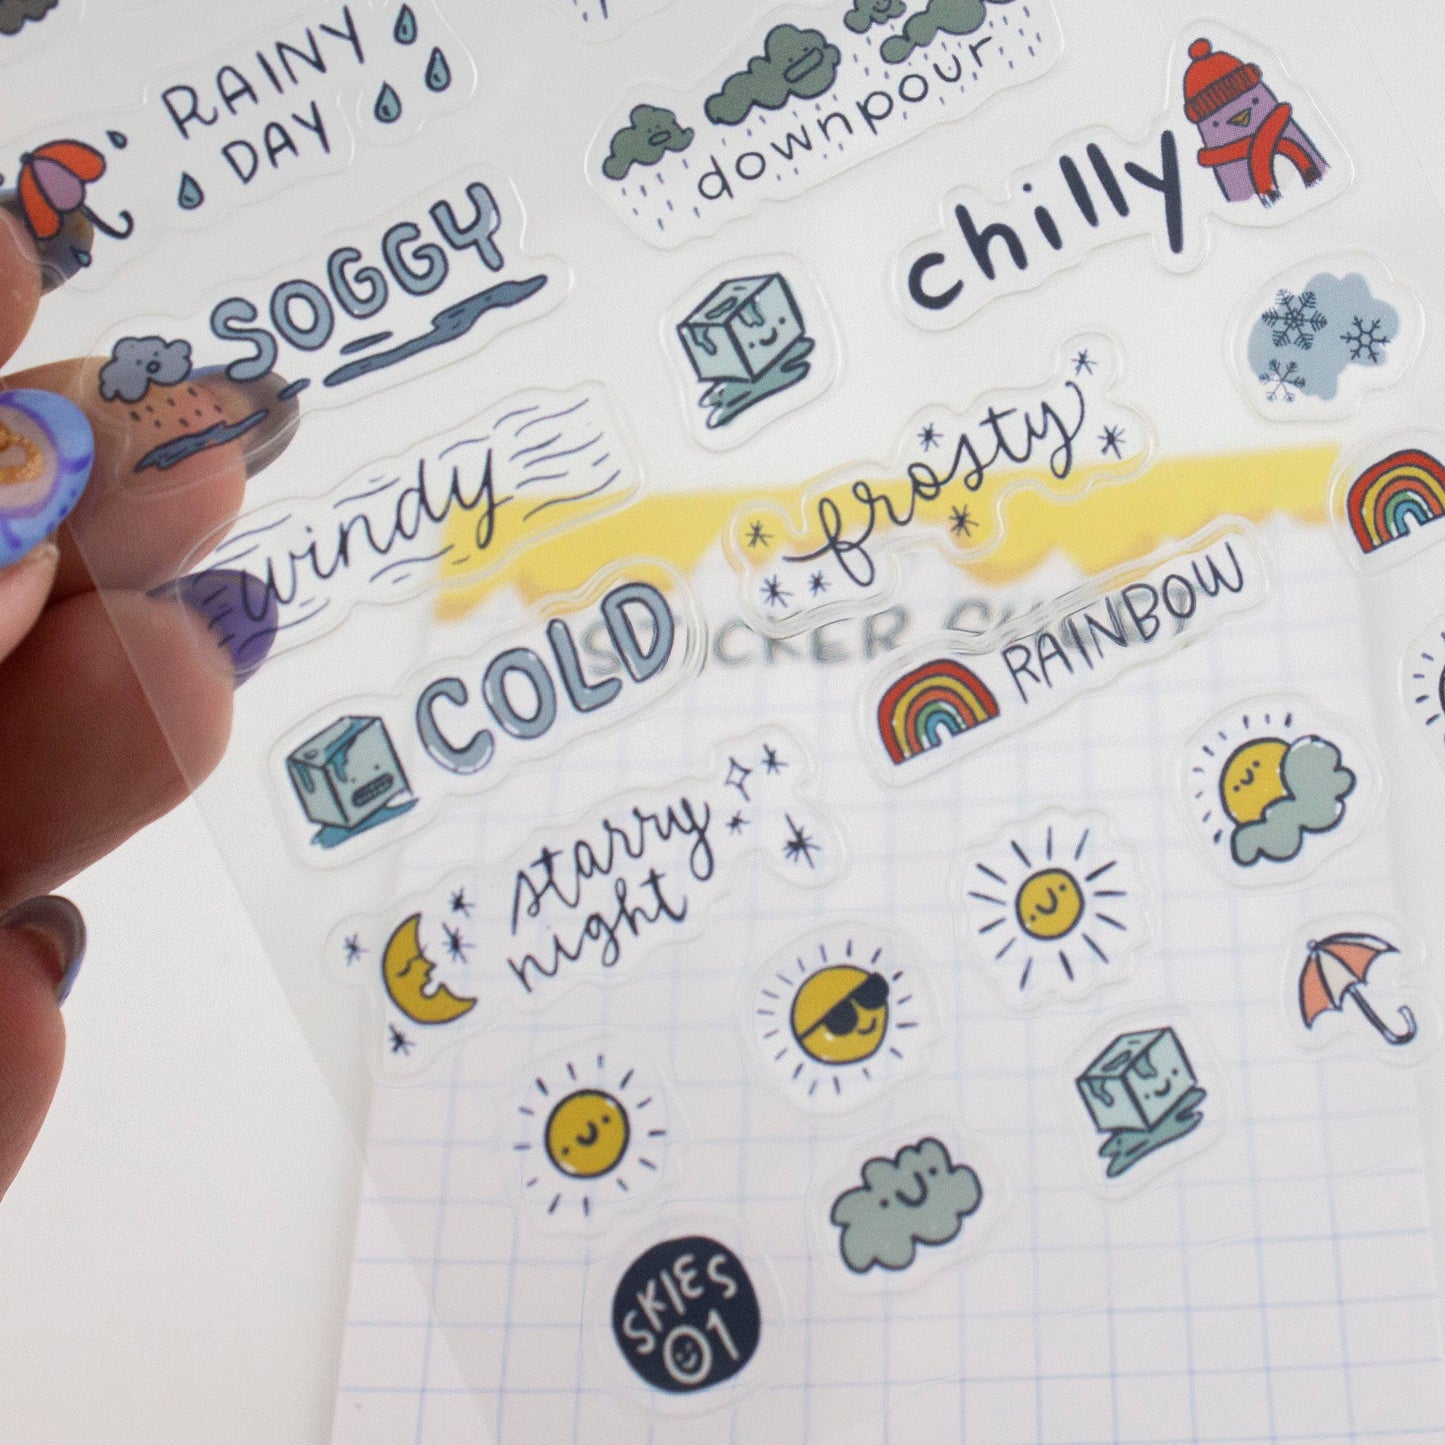 RAINY
DAY
downpour
chilly
SOGGY
windy
frosty
COLD
STICKER
RAINBOW
starry
night
SKIES
01